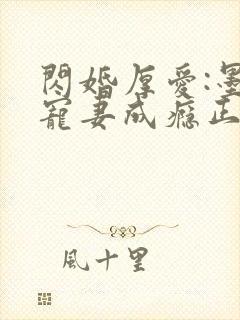 閃婚厚愛:墨
寵妻成瘾正
風十里